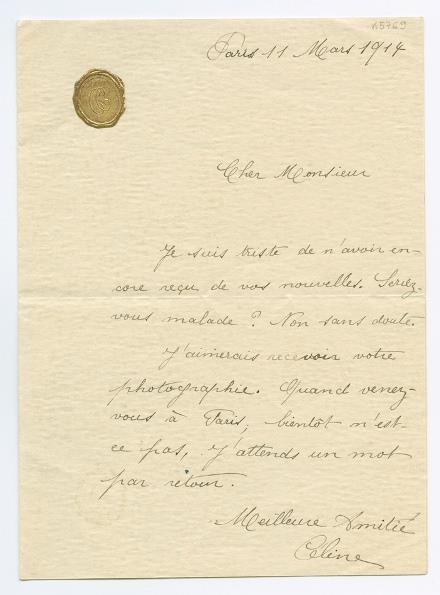 n5769
Paris 11 Mars 1914
Cher Monsieur
Je suis triste de n'avoir en-
core reçu de vos nouvelles. Seriez-
vous malade ? Non sans doute.
J'aimerais recevoir votre
photographie. Quand venez-
vous à Paris, bientôt n'est-
ce pas, J'attends un mot
par retour.
Meilleure Amitié
Céline